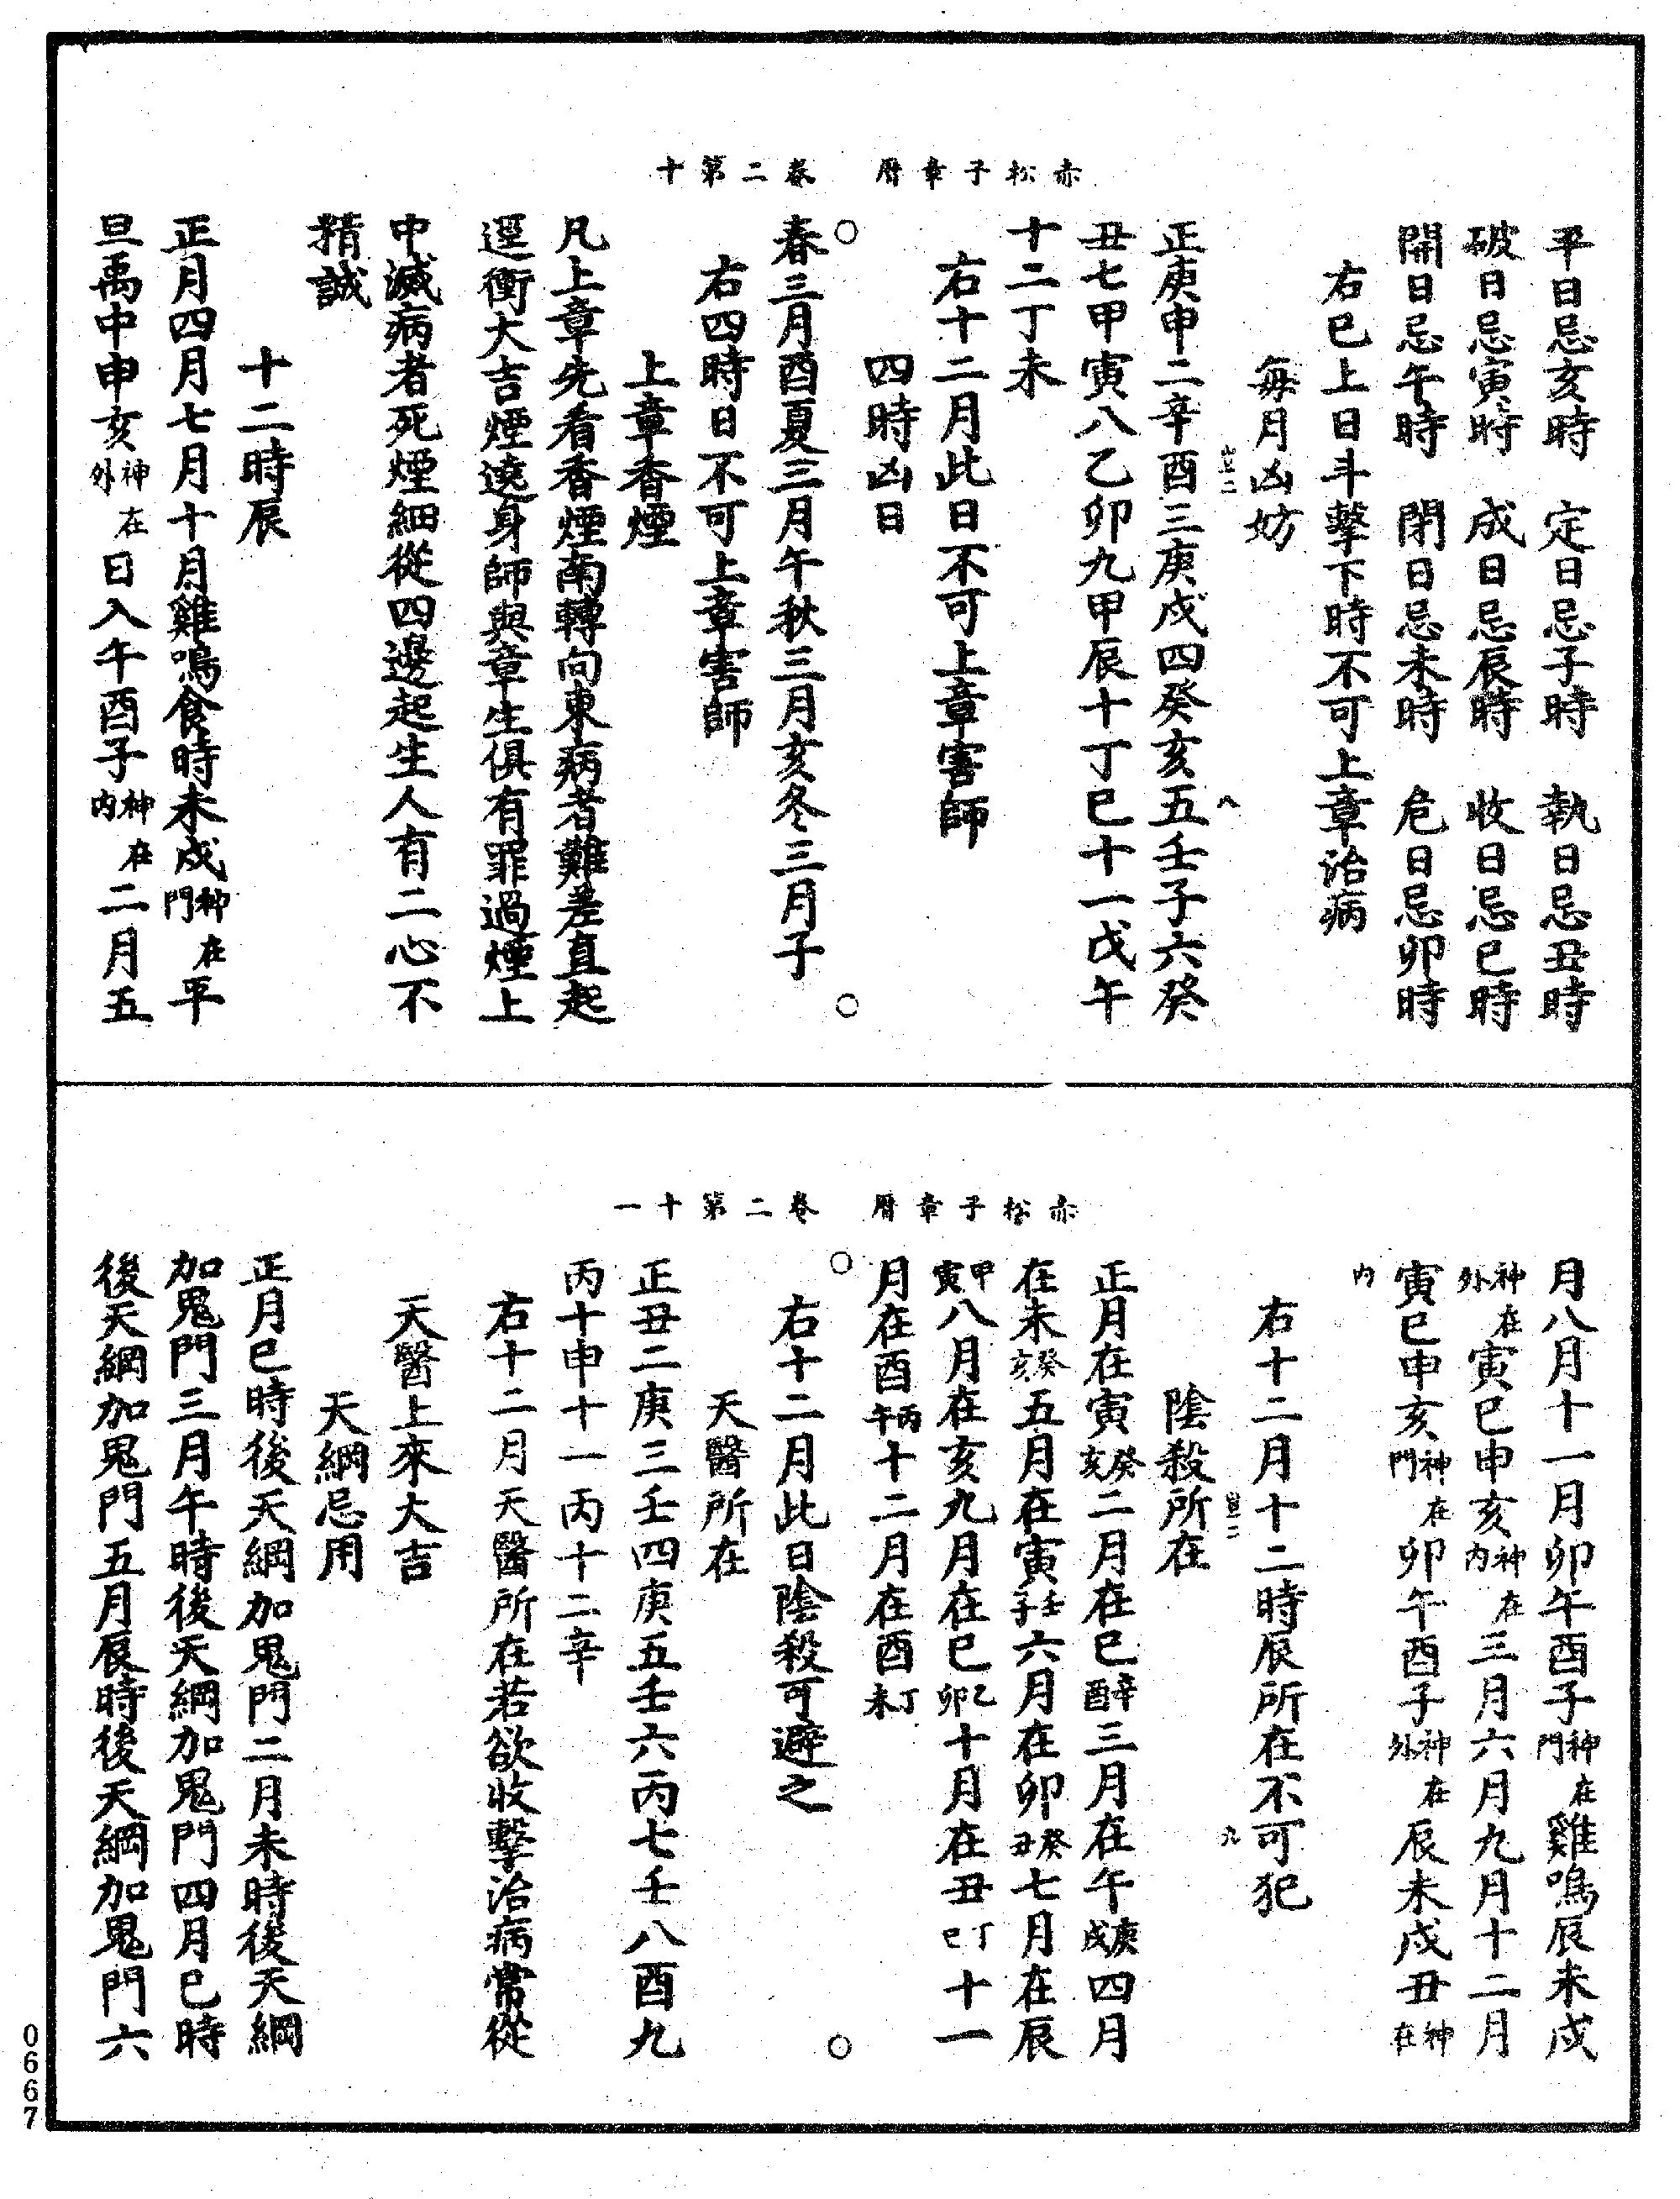 赤松子章曆　卷二第十
平日忌亥時　定日忌子時　執日忌丑時
破日忌寅時　成日忌辰時　收日忌巳時
開日忌午時　閉日忌未時　危日忌卯時
右已上日斗擊下時不可上章治病
每月凶妨
八
正庚申二辛酉三庚戌四癸亥五壬子六癸
丑七甲寅八乙卯九甲辰十丁巳十一戊午
十二丁未
右十二月此日不可上章害師
四時凶日
○　○
春三月酉夏三月午秋三月亥冬三月子
右四時日不可上章害師
上章香煙
凡上章先看香煙南轉向東病者難差直起
逕衝大吉煙遶身師與章生俱有罪過煙上
中滅病者死煙細從四邊起生人有二心不
精誠
十二時辰
正月四月七月十月雞鳴食時未戌神在門平
旦禹中申亥神在外日入午酉子神在內二月五
赤松子章曆　卷二第十一
月八月十一月卯午酉子神在門雞鳴辰未戌
神在外寅巳申亥神在內三月六月九月十二月
寅巳申亥神在門卯午酉子神在外辰未戌丑神在
內
右十二月十二時辰所在不可犯
九
陰殺所在
正月在寅癸亥二月在巳辛酉三月在午庚戌四月
在未癸亥五月在寅壬子六月在卯癸丑七月在辰
甲寅八月在亥九月在巳乙卯十月在丑丁巳十一
月在酉丙午十二月在酉丁未
○　○
右十二月此日陰殺可避之
天醫所在
正丑二庚三壬四庚五壬六丙七壬八酉九
丙十申十一丙十二辛
右十二月天醫所在若欲收擊治病常從
天醫上來大吉
天綱忌用
正月巳時後天綱加鬼門二月未時後天綱
加鬼門三月午時後天綱加鬼門四月巳時
後天綱加鬼門五月辰時後天綱加鬼門六
0667